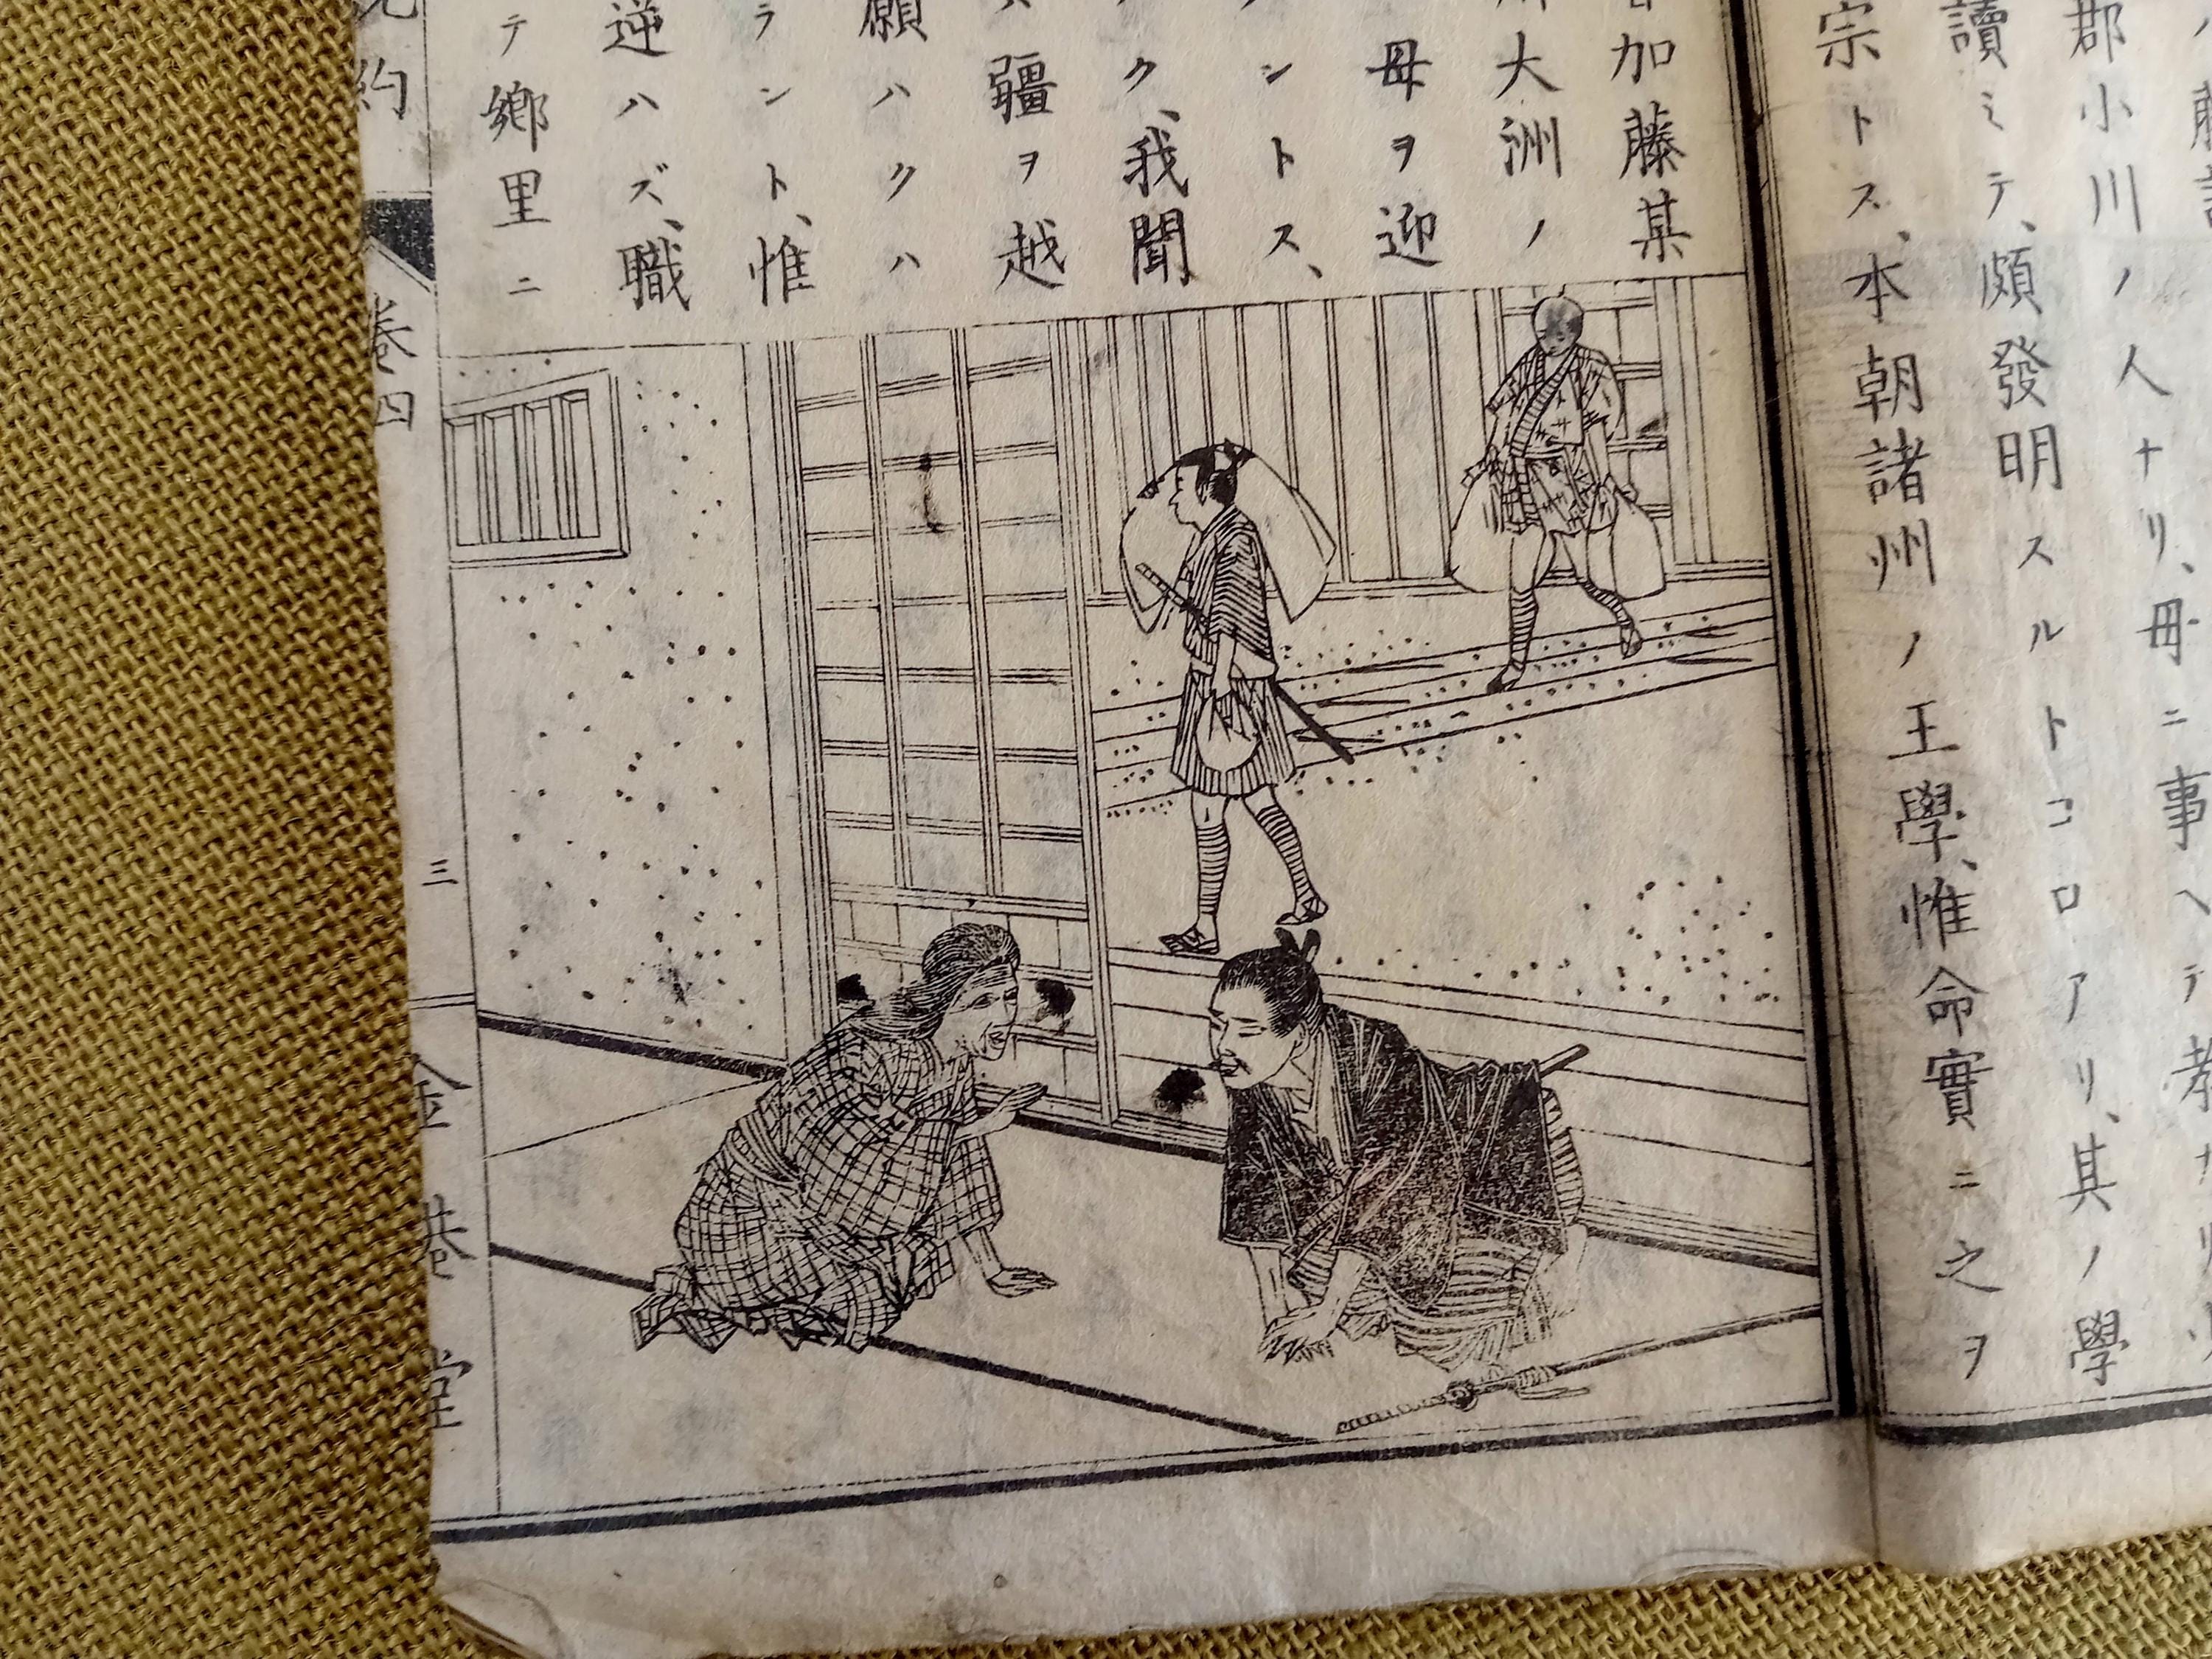 郡小川ノ人ナリ、母ニ事ヘテ孝
讀ミテ、頗發明スルトコロアリ、其ノ學
宗トス、本朝諸州ノ王學、惟命實ニ之ヲ
加藤某
大洲ノ
母ヲ迎
ントス、
ク、我聞
疆ヲ越
願ハクハ
ラント、惟
逆ハズ、職
テ鄕里ニ
約 卷四 三 金港堂